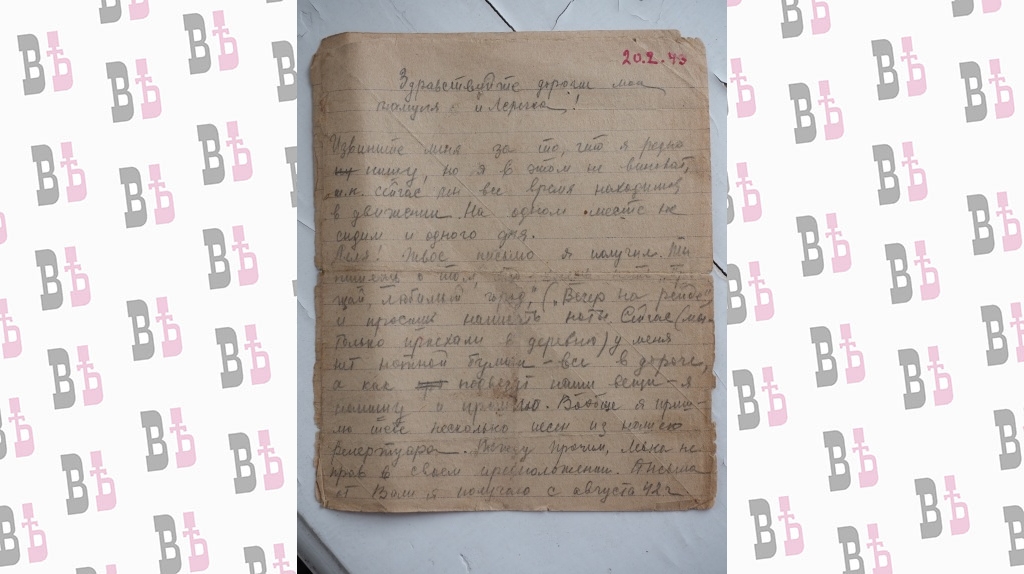 20.2.43
Здравствуйте дорогие мои
мамуся и Лерочка!
Извините меня за то, что я редко
пишу, но я в этом не виноват,
т.к. сейчас мы все время находимся
в движении. На одном месте не
сидим и одного дня.
Леля! Твое письмо я получил. Ты
пишешь о том, что
щай, любимый город", ("Вечер на рейде")
и просишь написать ноты. Сейчас (мы
только приехали в деревню) у меня
нет нотной бумаги - все в дороге,
а как подвезут наши вещи - я
напишу и пришлю. Вообще я приш-
лю тебе несколько песен из нашего
репертуара. Между прочим, мама не
прав в своем предположении. Письма
от Вали я получаю с августа 42 г
ВѢ